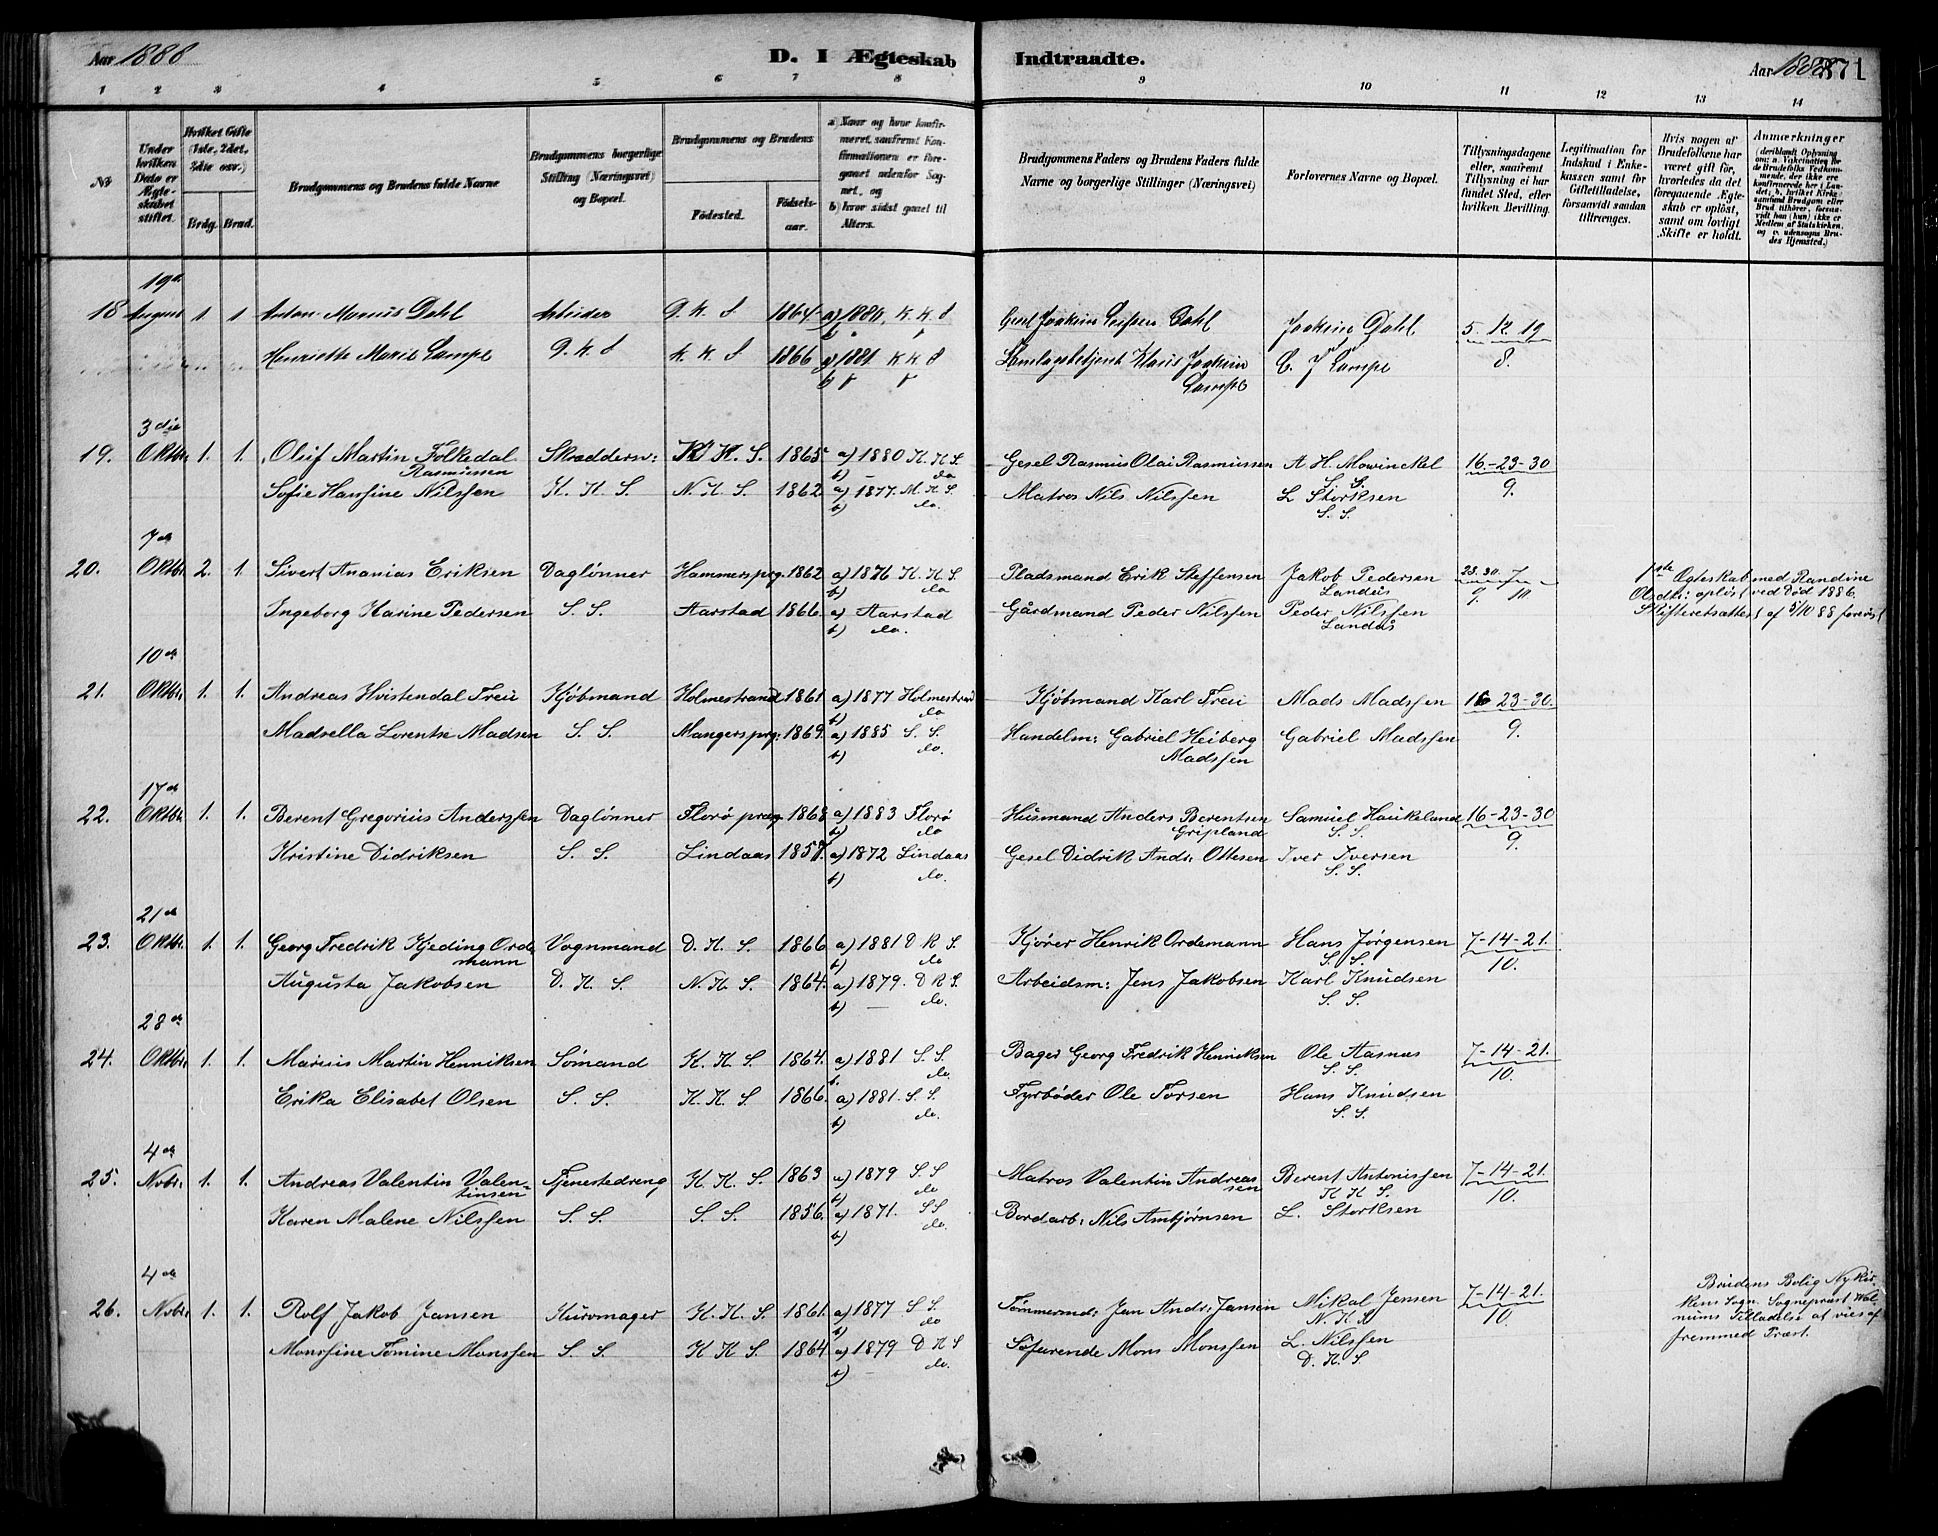 Aar 1888 D. I Ægteskab Indtraadte. Aar 1888 371
1 2 3 4 5 6 7 8 9 10 11 12 13 14
No
Under hvilken Dato er Ægteskabet stiftet.
Hvilket Gifte (1ste, 2det, 3die osv.)
Brdg. Brud.
Brudgommens og Brudens fulde Navne
Brudgommens borgerlige Stilling (Næringsvei) og Bopæl.
Brudgommens og Brudens
Fødested. Fødselsaar.
a) Naar og hvor konfirmeret, saafremt Konfirmationen er foregaaet udenfor Sognet, og
b) hvor sidst gaaet til Alters.
Brudgommens Faders og Brudens Faders fulde Navne og borgerlige Stillinger (Næringsvei)
Forlovernes Navne og Bopæl.
Tillysningsdagene eller, saafremt Tillysning ei har fundet Sted, efter hvilken Bevilling.
Legitimation for Indskud i Enkekassen samt for Giftetilladelse, forsaavidt saadan tiltrænges.
Hvis nogen af Brudefolkene har været gift før, hvorledes da det foregaaende Ægteskab er opløst, samt om lovligt Skifte er holdt.
Anmærkninger (deriblandt Oplysning om: a. Vakcination for de Brudefolks Vedkommende, der ikke ere konfirmerede her i Landet; b. hvilket Kirkesamfund Brudgom eller Brud tilhører, forsaavidt han (hun) ikke er Medlem af Statskirken, og c. udensogns Brudes Hjemsted.)
19de
18 August 1. 1 Anton Marius Dahl Arbeider 1864 a) 1880. K. K. S Joakim Dahl 5. 12. 19
Henriette Marie Lampe K. K. S 1866 a) 1881 K K S Klaus Joakim C. J Lampe 8.
Lampe
3die
19. Oktbr. 1. 1. Oluf Martin Folkedal Skrædersv: K. K. S. 1865 a) 1880 K. K. S. Gesel Rasmus Olai Rasmussen A H. Mowinckel 16-23-30
Rasmussen b) - do S. S. 9.
Sofie Hansine Nilssen K. K. S. N. K. S. 1862 a) 1877. N. K. S. Matros Nils Nilssen L Storksen
b) do. S. S.
7de
20. Oktbr. 2. 1. Sivert Ananias Eriksen Daglønner Hammersprg. 1862 a) 1876 K. K. S. Pladsmand Erik Steffensen Jakob Pedersen 23. 30. 7 1ste Egteskab med Randine
b) do Landås 9. 10 Olsdtr: opløst ved Død 1886.
Ingeborg Karine Pedersen S. S. Aarstad 1866. a) Aarstad Gårdmand Peder Nilssen Peder Nilssen Skifteretsattest af 5/10 88 forevist
b) do. Landås
10de
21. Oktbr. 1. 1. Andreas Hvistendal Freu Kjøbmand Holmestrand 1861 a) 1877 Holmestrand Kjøbmand Karl Freu Mads Madssen 16-23-30.
b) do 9.
Madsella Lorentse Madsen S. S. Mangersprg: 1869. a) 1885 S. S. Handelm: Gabriel Heiberg Gabriel Madssen
b) do. Madssen
17de
22. Oktbr. 1. 1. Berent Gregorius Anderssen Daglønner Florø præg. 1868 a) 1883 Florø Husmand Anders Berentsen Samuel Haukeland 16-23-30
b) do Gripland S. S. 9.
Kristine Didriksen S. S. Lindaas 1857. a) 1872 Lindaas Gesel Didrik Andr: Ottesen Iver Iversen
b) do. S. S.
21de
23. Oktbr. 1. 1. Georg Fredrik Kjeding Orde Vognmand D. K. S 1866 a) 1881 D K S. Kjører Henrik Ordemann Hans Jørgensen 7-14-21.
mann b) do S. S. 10.
Augusta Jakobsen D. K. S N. K. S 1864. a) 1879. D K S. Arbeidsm: Jens Jakobsen Karl Knudsen
b) - do. S. S.
28de
24. Oktbr. 1. 1. Marius Martin Henriksen Sømand K. K. S. 1864. a) 1881 S S. Bager Georg Fredrik Henriksen Ole Aasnas 7-14-21.
b. do. S. S. 10.
Erika Elisabet Olsen S. S. K. K. S 1866. a) 1881. S S. Fyrbøder Ole Torsen Hans Knudsen
b) do. S. S.
4de
25. Nvbr. 1. 1. Andreas Valentin Valen- Tjenestedreng K. K. S. 1863 a) 1879 S S Matros Valentin Andreas Berent Antonissen 7-14-21.
tinsen b) do sen K K S. 10.
Karen Malene Nilssen S. S. S. S. 1856. a) 1871. S S Bordarb: Nils Ambjørnsen L. Storksen
b) do.
4de
26. Nvbr. 1. 1. Rolf Jakob Jansen Kurvmager K. K. S. 1861. a) 1877 S S. Tømmermd: Jan Andr: Jansen Nikal Jensen 7-14-21. Brudens Bolig Nykir-
b) do N. K. S 10. kens Sogn. Sogneprest Wal-
Monssine Tomine Monssen S. S. K K S. 1864 a) 1879 D K S Søfarende Mons Monssen L. Nilssen nums Tilladelse at vies af
b) - do. D. K. S fremmed Præst.